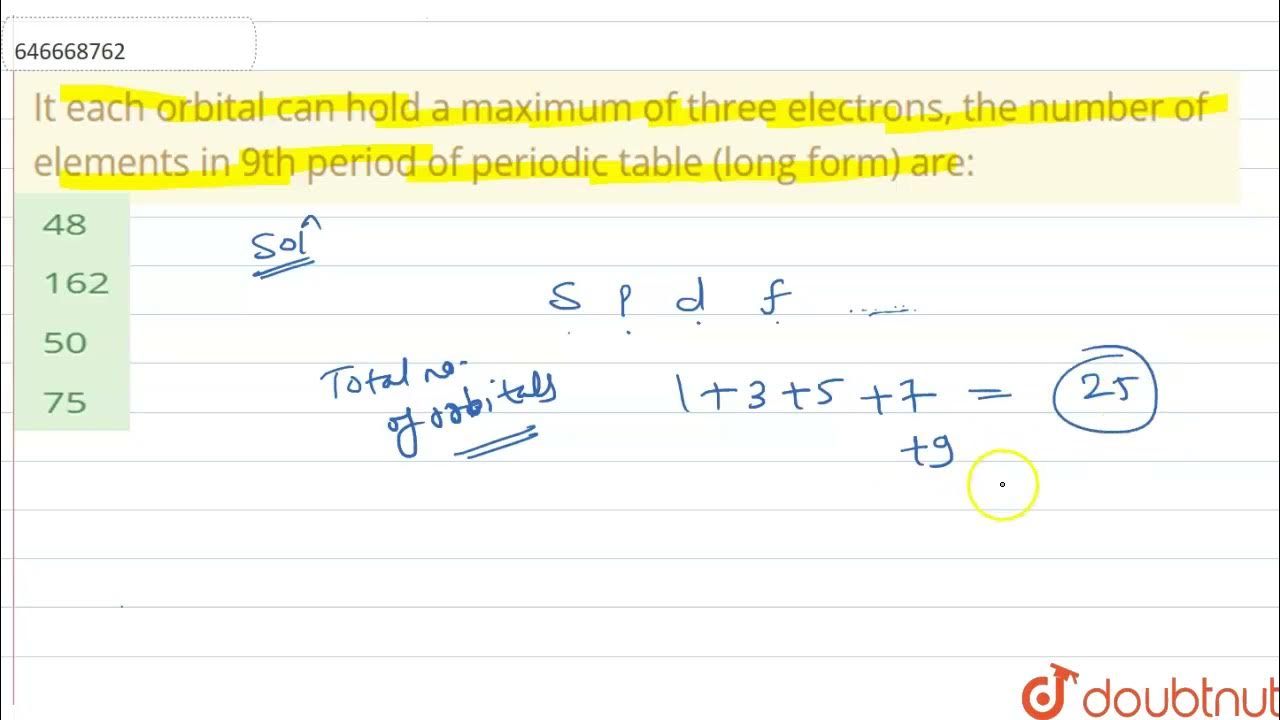 646668762
It each orbital can hold a maximum of three electrons, the number of
elements in 9th period of periodic table (long form) are:
48
162
50
75
Sol^n
S P d f ........
Total no.
of orbitals
1+3+5+7 = 25
+9
doubtnut